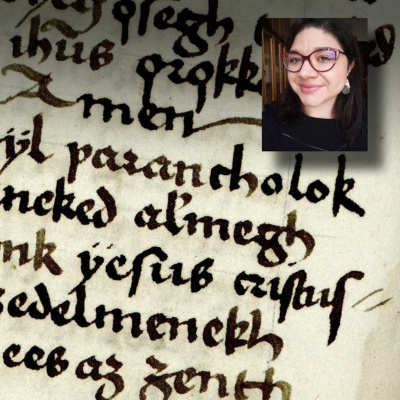 ihus
Amen
ÿl parancholok
neked almegh
nk ÿesus cristus
edelmenekh
ees az zenth